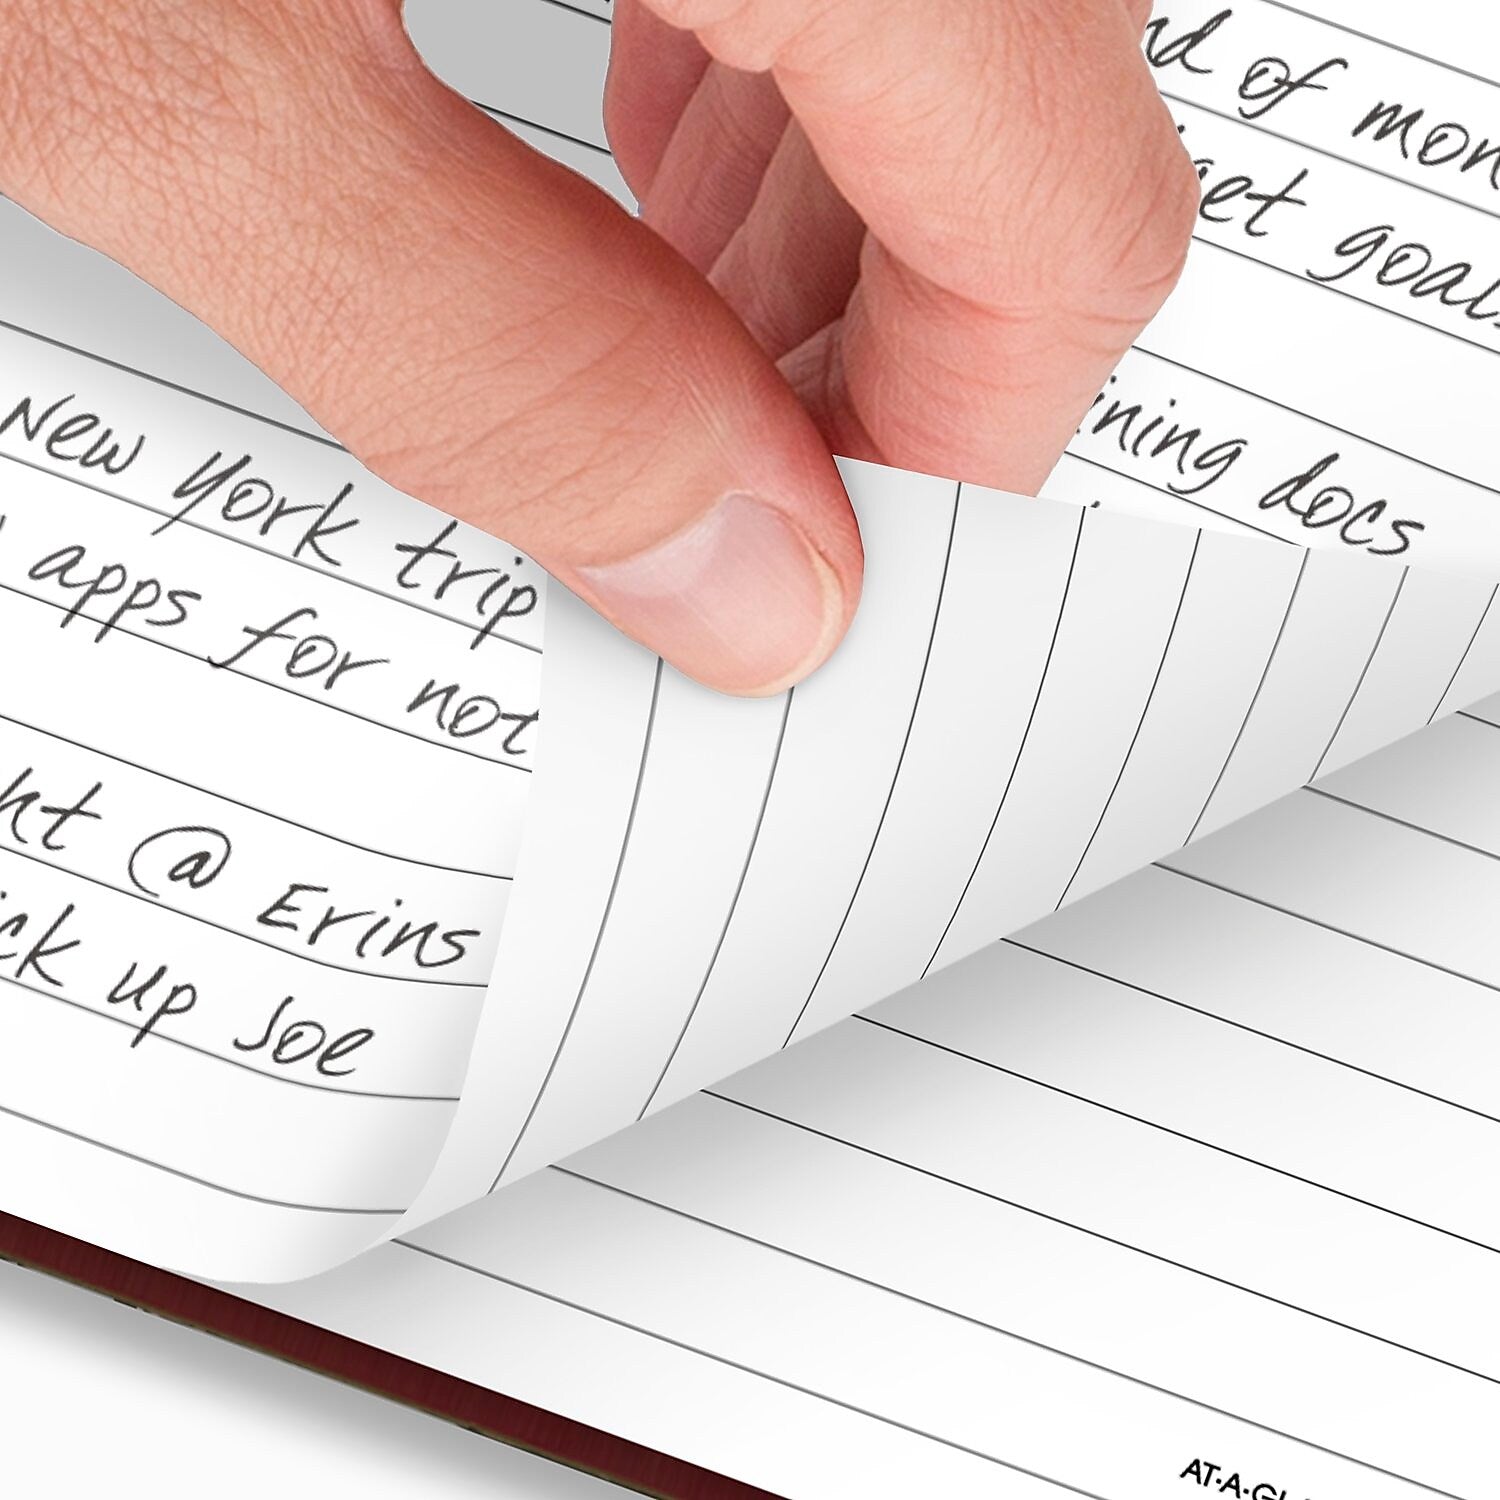 nd of mon
get goals
ining docs
New York trip
apps for not
ht @ Erins
ick up Joe
AT-A-GL